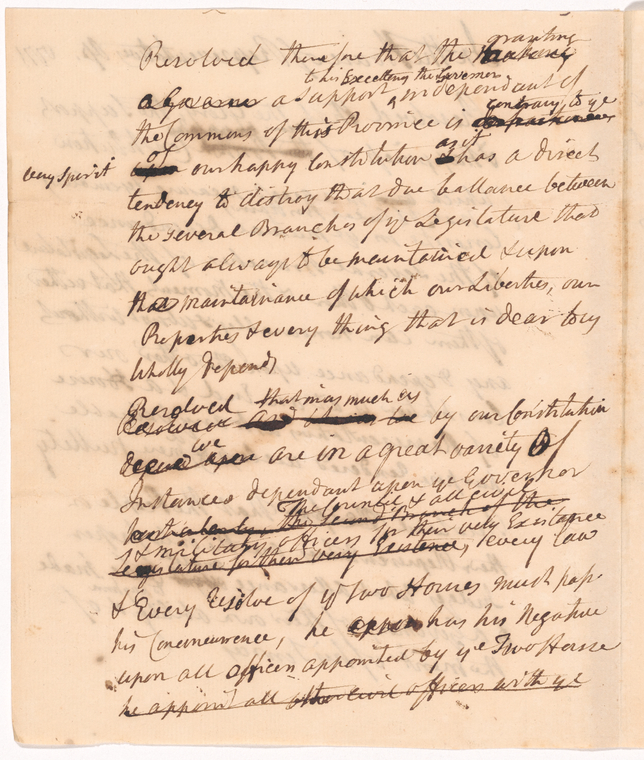 Resolved therefore that the granting
to his Excellency the Governor
a Governor a Support independant of
the Commons of this Province is contrary to ye
very Spirit of our happy Constitution as it has a direct
tendency to distroy that due ballance between
the several Branches of ye Legislature that
ought always to be maintained & upon
the maintainance of which our Liberties, our
Properties & every thing that is dear to us
wholly depend
Resolved that inasmuch as
by our Constitution
we are in a great variety of
Instances dependant upon ye Governor
The Council & all civil
particularly The Second Branch of the
& military officers for their very Existance
Legislature for their very Existence, & every Law
& Every Resolve of ye Two Houses must pass
his Concurrence, he has his Negative
upon all officers appointed by ye Two House
he appoint all other civil officers with ye